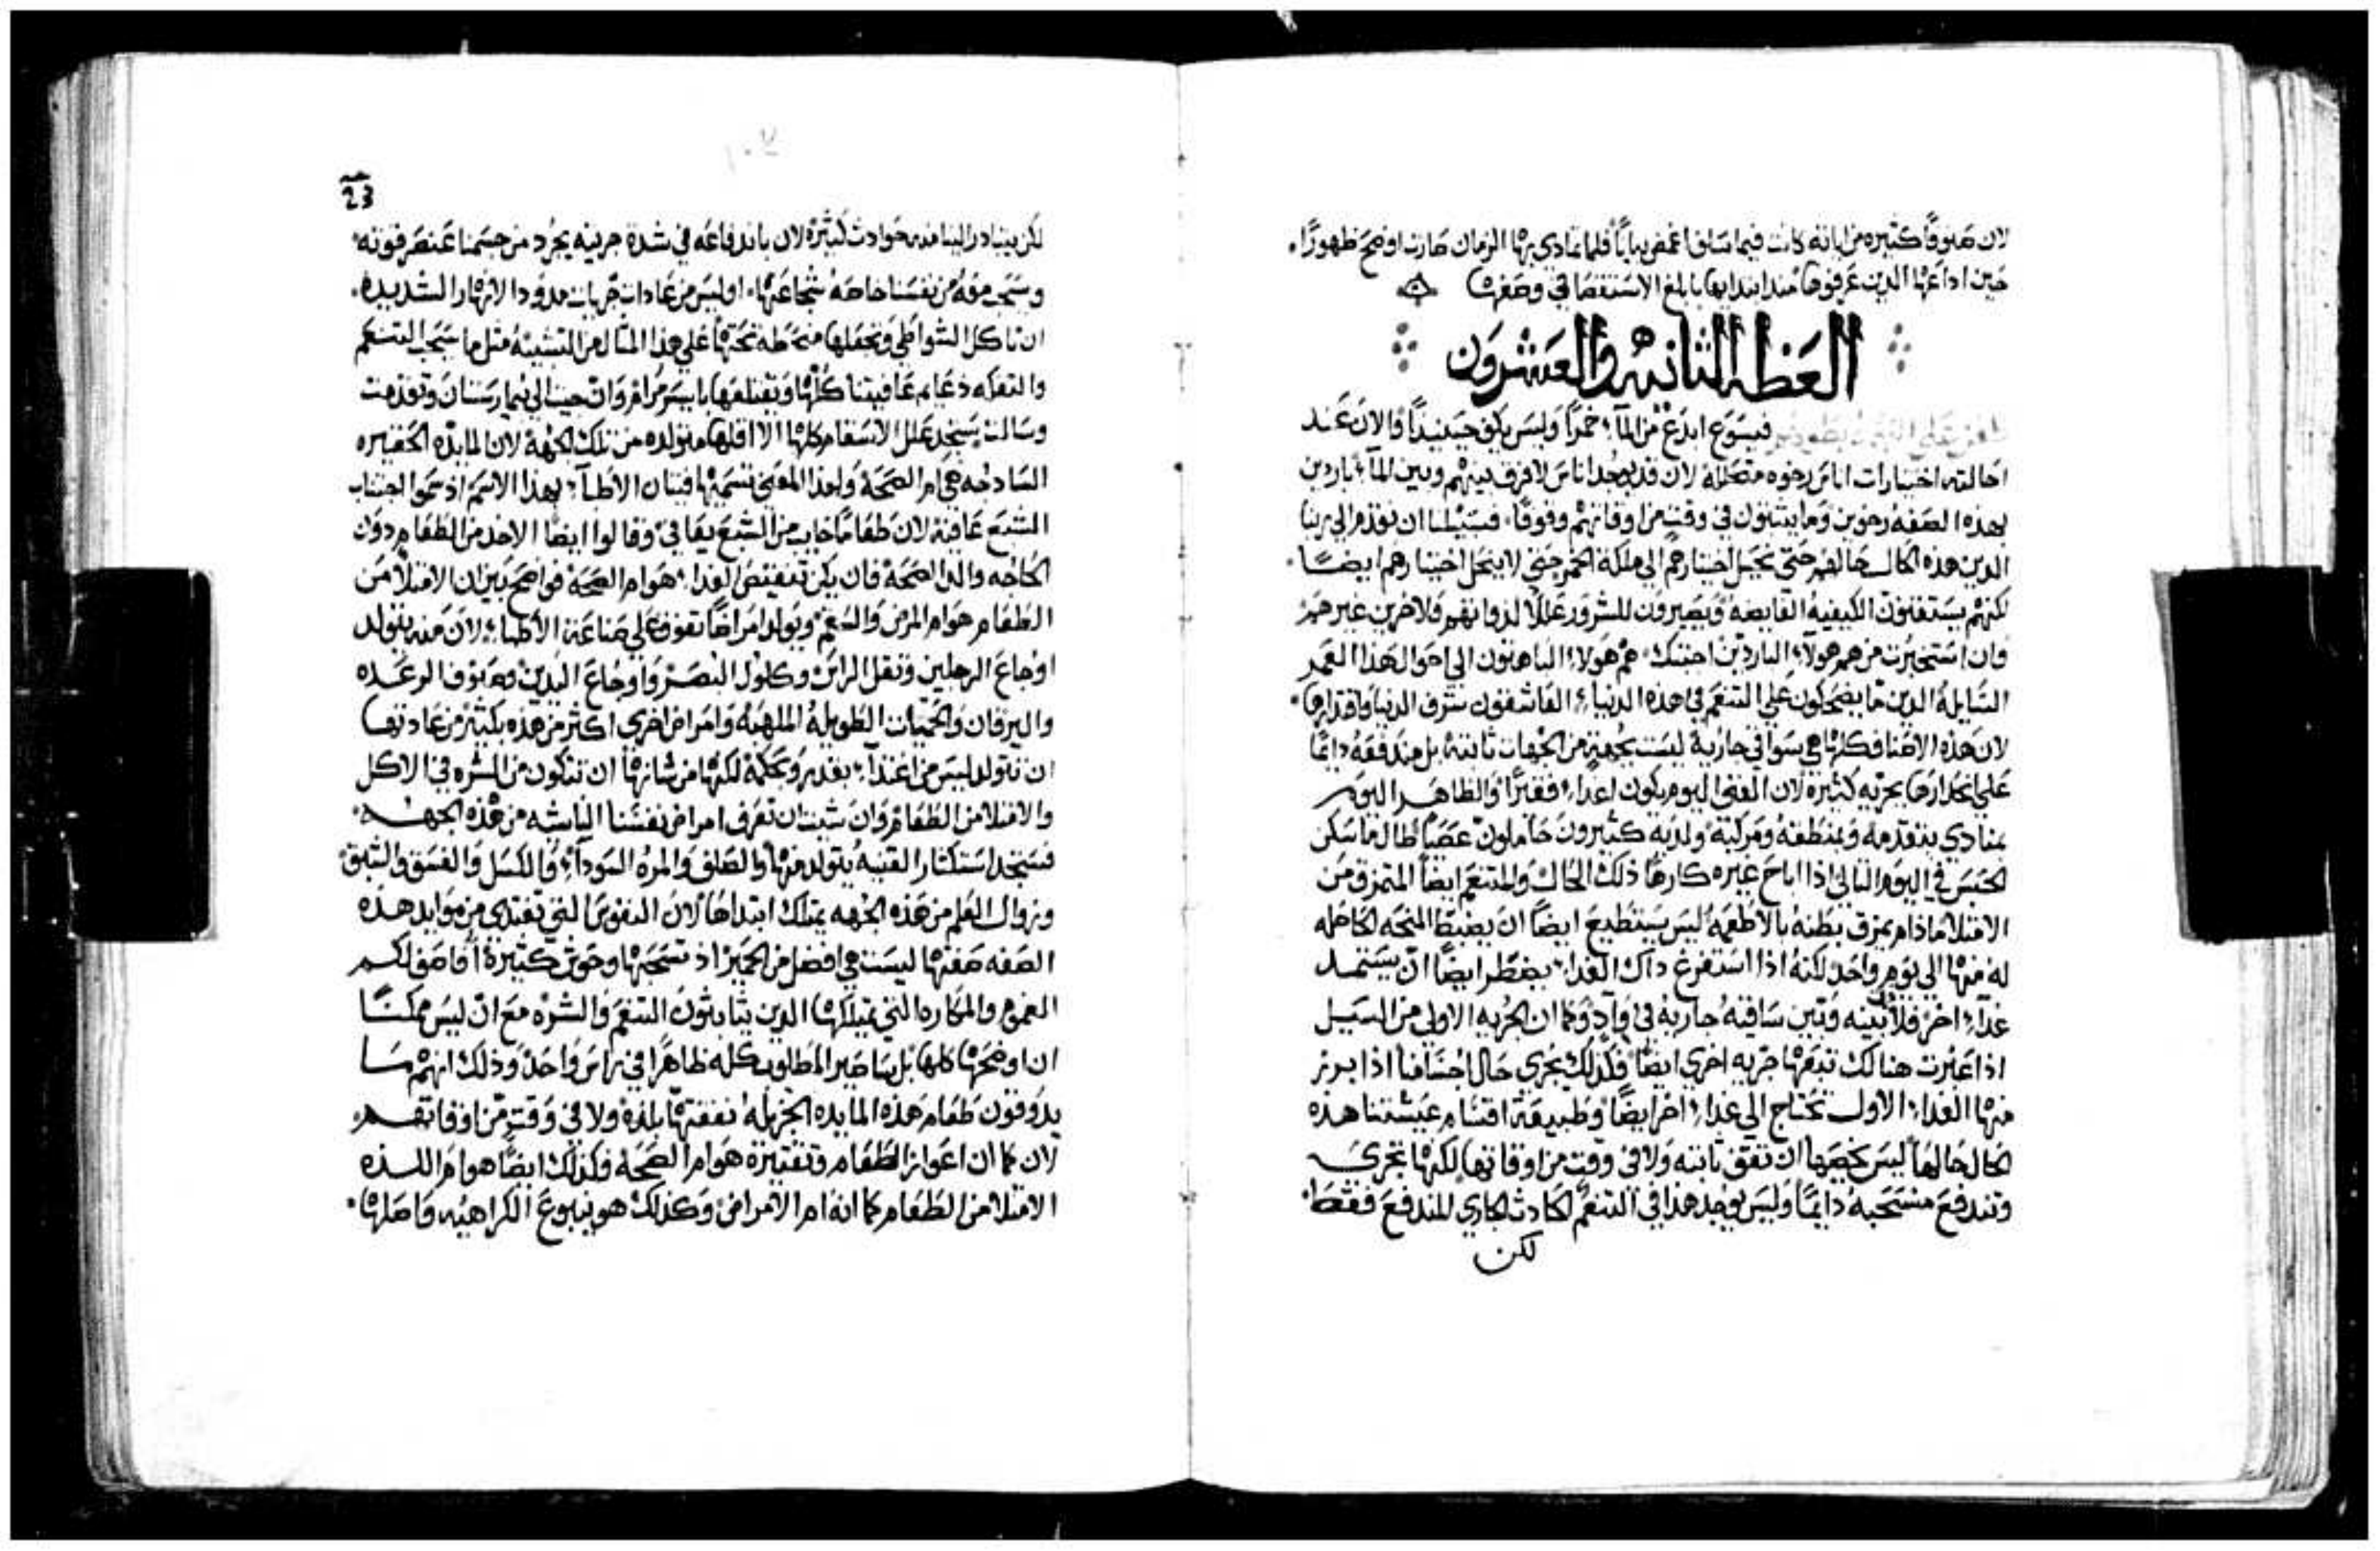 لان صنوفًا كثيره من اياته كانت فيما سلف اغمض بيانًا فلما تمادي بها الزمان صارت اوضح ظهورًا
حين اداعها الدين عرفوها مند ابتدايها بابلغ الاستقصا في وصفها
العظه الثانيه والعشرون
فيسوع ابدع من المآء خمرًا وليس يكف حينيدًا والان عند
احالته اختيارات اناس رخوه متحلله لان قد يوجد اناس لافرق بينهم وبين المآء باردين
بهده الصفه رخوين وما يثبتون في وقت من اوقاتهم وقوفًا فسبيلنا ان نقدم الي ربنا
الدين هده الحال حالهم حتي يحيل اختيارهم الي ملكة الخمر حتي لاينحل اختيارهم ايضًا
لكنهم يستقنون الكيفيه القابضه ويصيرون للسرور عللًا لدواتهم ولاخرين غيرهم
فان استخبرت من هم هولاء الباردين اجبتك هم هولاء الباهتون الي احوال هدا العمر
السايله الدين ما يضحكون علي التنعم في هده الدنيا العاشقون شرف الدنيا واقتدارها
لان هده الاصناف كلها هي سواقي جاريه ليست بجهة من الجهات ثابته بل مندفقه دايمًا
علي انحدارها بجريه كثيره لان الغني اليوم يكون غدا فقيرًا والظاهر اليوم
بمنادي يتقدمه وبمنطقه ومركبه ولديه كثيرون حاملون عصيًا طال ما سكن
الحبس في اليوم التالي ادا اباح غيره كارهًا ذلك الحال والمتنعم ايضًا المتمزق من
الامتلا مادام يمزق بطنه بالاطعمه ليس يستطيع ايضًا ان يضبط المنحه الحاصله
له منها الي يوم واحد لكنه ادا استفرغ داك الغدا يضطر ايضًا ان يستمد
غدآء اخر فلا بينه وبين ساقيه جاريه في وادٍ وكما ان الجريه الاولي من السيل
ادا عبرت هنالك تبعها جريه اخري ايضًا فكدلك يجري حال اجسامنا ادا برز
منها الغدا الاول تحتاج الي غدا اخر ايضًا وطبيعة اقسام عيشتنا هده
الحال حالها ليس يخصها ان تقف ثابته ولا في وقت من اوقاتها لكنها تجري
وتندفع منسحبه دايمًا وليس يوجد هدا في التنعم الحادث الجاري المندفع فقط
لكن
23
لكن يتبادر الينا منه حوادث كثيره لان باندفاعه في شدة جريته يجرد من جسمنا عنصر قوته
ويسحب معه من نفسنا خاصه شجاعتها اوليس من عادات جريات مدودالانهار الشديده
ان تاكل الشواطي وتجعلها منحطه تحتها علي هدا المثال من التشبيه مثل ما يسحب التنعم
والتفكه دعايم عافيتنا كلها ويقتلعها بايسر مرام وان جيت الي بيمارستان وتقدمت
وسالت ستجد علل الاسقام كلها الا اقلها متولده من تلك الجهة لان المايده الحقيره
السادجه هي ام الصحة ولهدا المعني تسميها فتيان الاطبآء بهدا الاسم اد سموا اجتناب
الشبع عافية لان طعامًا خايب من الشبع يعافي وقالوا ايضًا الاخد من الطعام دون
الحاجه والدا الصحة فان يكن تنقيص الغدا هو ام الصحة فواضح بين ان الامتلا من
الطعام هو ام المرض والسقم ويولد امراضًا تفوق علي صناعة الاطباء لان منه يتولد
اوجاع الرجلين وثقل الراس وكلول البصر واوجاع اليدين وصنوف الرعده
واليرقان والحميات الطويله الملهبه وامراض اخري اكثر من هده بكثير من عادتها
ان تتولد ليس من اغتدآء بقدر وبحكمة لكنها من شانها ان تتكون من الشره في الاكل
والامتلا من الطعام وان شيت ان تعرف امراض نفسنا الناشيه من هده الجهه
فستجد استكثار القنيه يتولد منها والصلف والمره السودآء والكسل والفسق والشبق
وزوال العلم من هده الجهه يمتلك ابتداها لان النفوس التي تغتدي من موايد هده
الصفه صفتها ليست هي افضل من الحمير اد تسحبها وحوش كثيرة أفاصف لكم
الغموم والمكاره التي يمتلكها الدين يثابتون التنعم والشره مع ان ليس ممكنًا
ان اوضحها كلها بل ساصير المطلوب كله ظاهرًا في راس واحد وذلك انهم ما
يدوقون طعام هده المايده الجزيله نفقتها بلدة ولا في وقت من اوقاتهم
لان كما ان اعواز الطعام وتقتيره هو ام الصحة فكدلك ايضًا هو ام اللده
الامتلا من الطعام كما انه ام الامراض وكدلك هو ينبوع الكراهيه واصلها